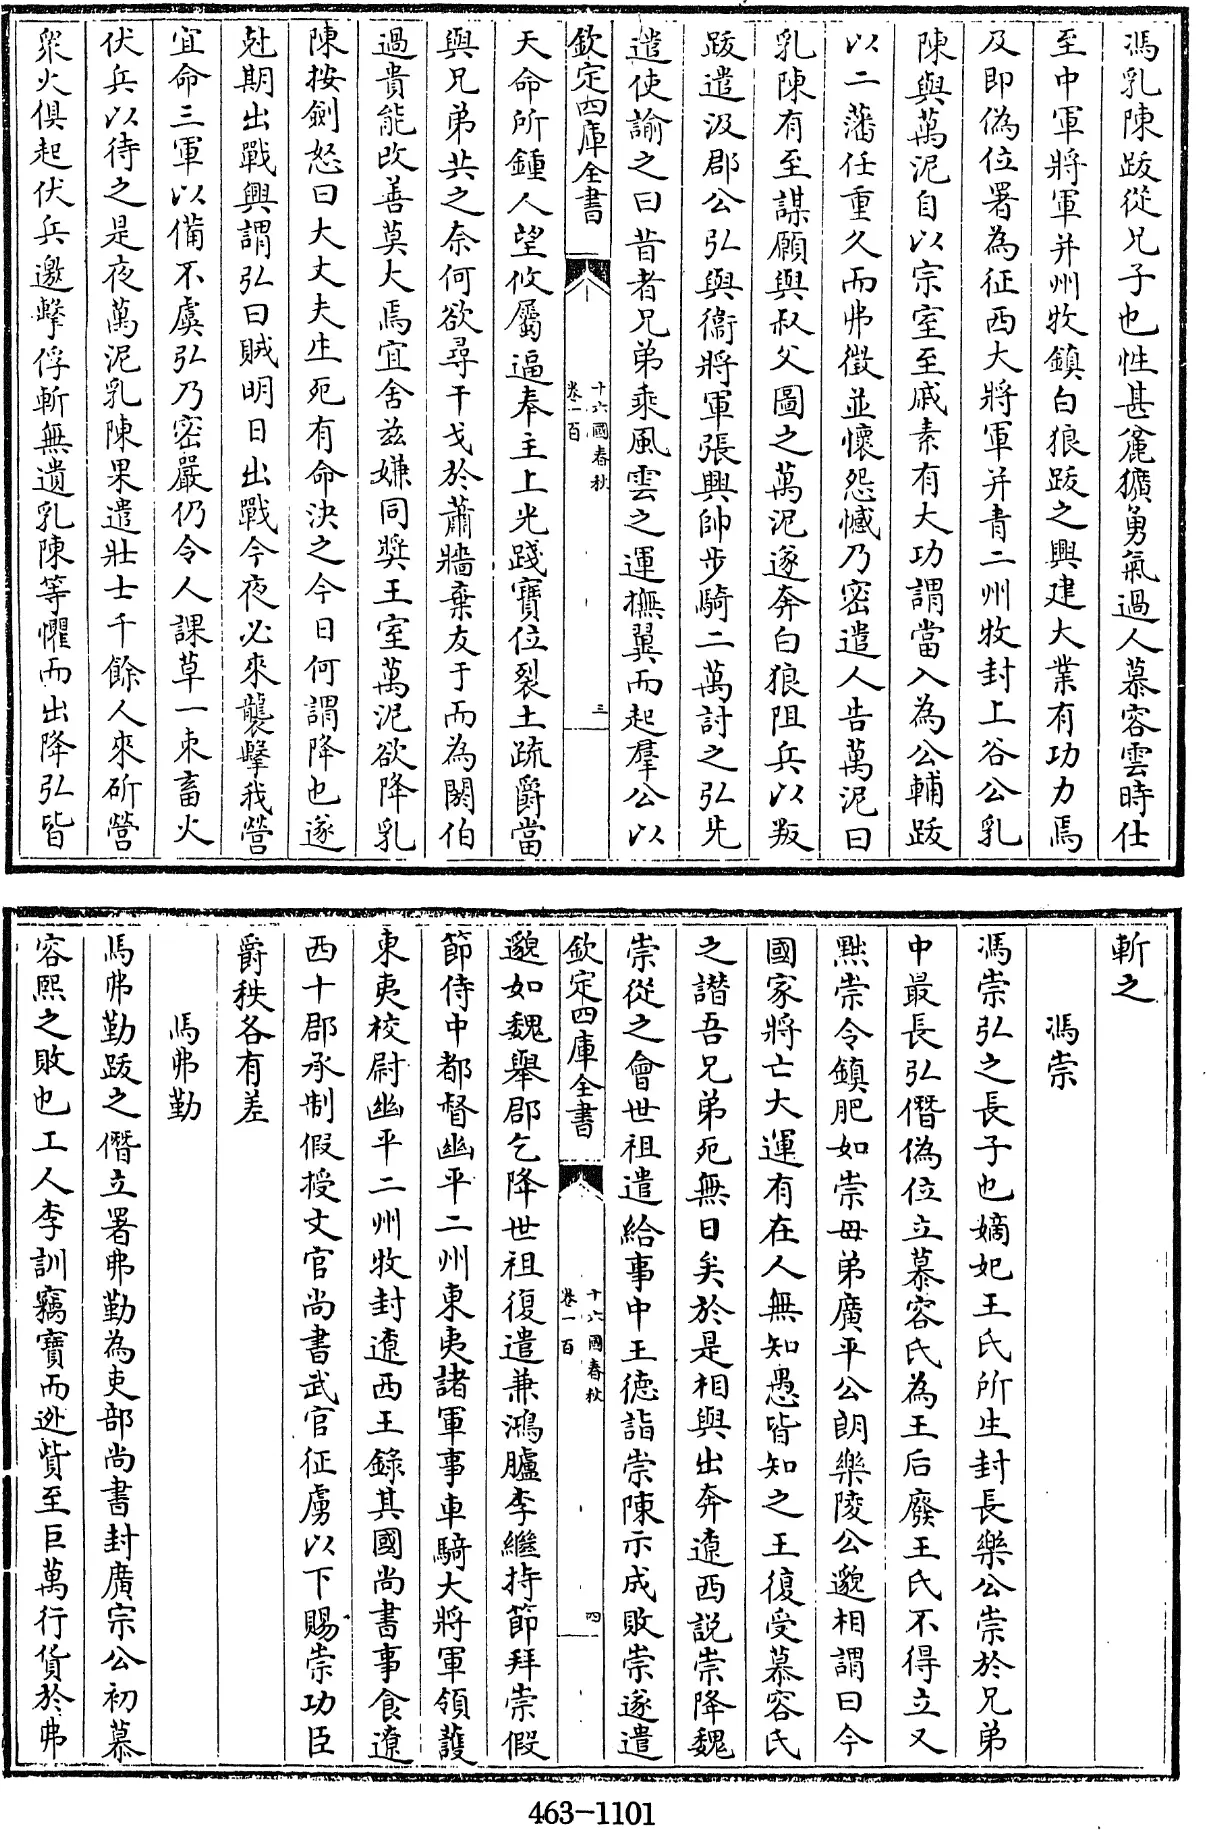 馮乳陳跋從兄子也性甚麄獷勇氣過人慕容雲時仕
至中軍將軍并州牧鎮白狼跋之興建大業有功力焉
及即偽位署為征西大將軍并青二州牧封上谷公乳
陳與萬泥自以宗室至戚素有大功謂當入為公輔跋
以二藩任重久而弗徵並懷怨憾乃密遣人告萬泥曰
乳陳有至謀願與叔父圖之萬泥遂奔白狼阻兵以叛
跋遣汲郡公弘與衞將軍張興帥步騎二萬討之弘先
遣使諭之曰昔者兄弟乘風雲之運撫翼而起羣公以
欽定四庫全書
十六國春秋
卷一百
三
天命所鍾人望攸屬逼奉主上光踐寶位裂土疏爵當
與兄弟共之奈何欲尋干戈於蕭牆棄友于而為閼伯
過貴能改善莫大焉宜舍兹嫌同奬王室萬泥欲降乳
陳按劍怒曰大丈夫生死有命決之今日何謂降也遂
尅期出戰興謂弘曰賊明日出戰今夜必來襲擊我營
宜命三軍以備不虞弘乃密嚴仍令人課草一束畜火
伏兵以待之是夜萬泥乳陳果遣壯士千餘人來斫營
衆火俱起伏兵邀擊俘斬無遺乳陳等懼而出降弘皆
斬之
馮崇
馮崇弘之長子也嫡妃王氏所生封長樂公崇於兄弟
中最長弘僭偽位立慕容氏為王后廢王氏不得立又
黜崇令鎮肥如崇母弟廣平公朗樂陵公邈相謂曰今
國家將亡大運有在人無知愚皆知之王復受慕容氏
之譖吾兄弟死無日矣於是相與出奔遼西説崇降魏
崇從之會世祖遣給事中王德詣崇陳示成敗崇遂遣
欽定四庫全書
十六國春秋
卷一百
四
邈如魏舉郡乞降世祖復遣兼鴻臚李繼持節拜崇假
節侍中都督幽平二州東夷諸軍事車騎大將軍領護
東夷校尉幽平二州牧封遼西王錄其國尚書事食遼
西十郡承制假授文官尚書武官征虜以下賜崇功臣
爵秩各有差
馮弗勤
馮弗勤跋之僭立署弗勤為吏部尚書封廣宗公初慕
容熙之敗也工人李訓竊寶而逃貲至巨萬行貨於弗
463-1101